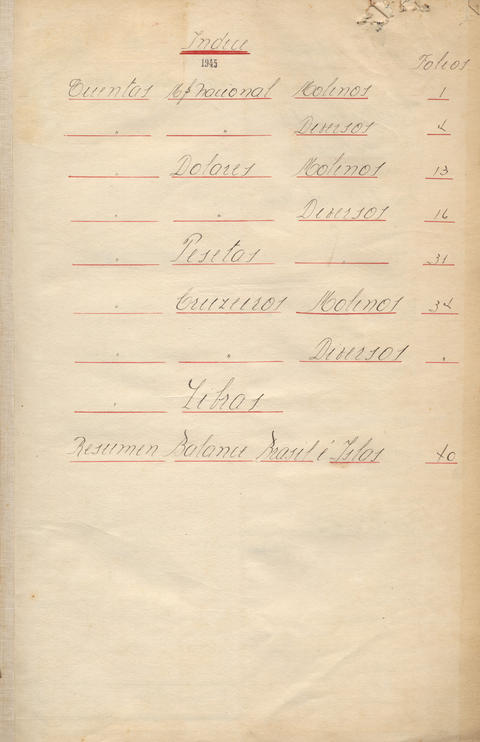 Indice
1945
Folios
Cuentas M/Nacional Molinos 1
" " Diversos 4
" Dolares Molinos 13
" " Diversos 16
" Pesetas " 31
" Cruzeiros Molinos 34
" " Diversos "
" Libras
Resumen Balance Brasil é Islas 40